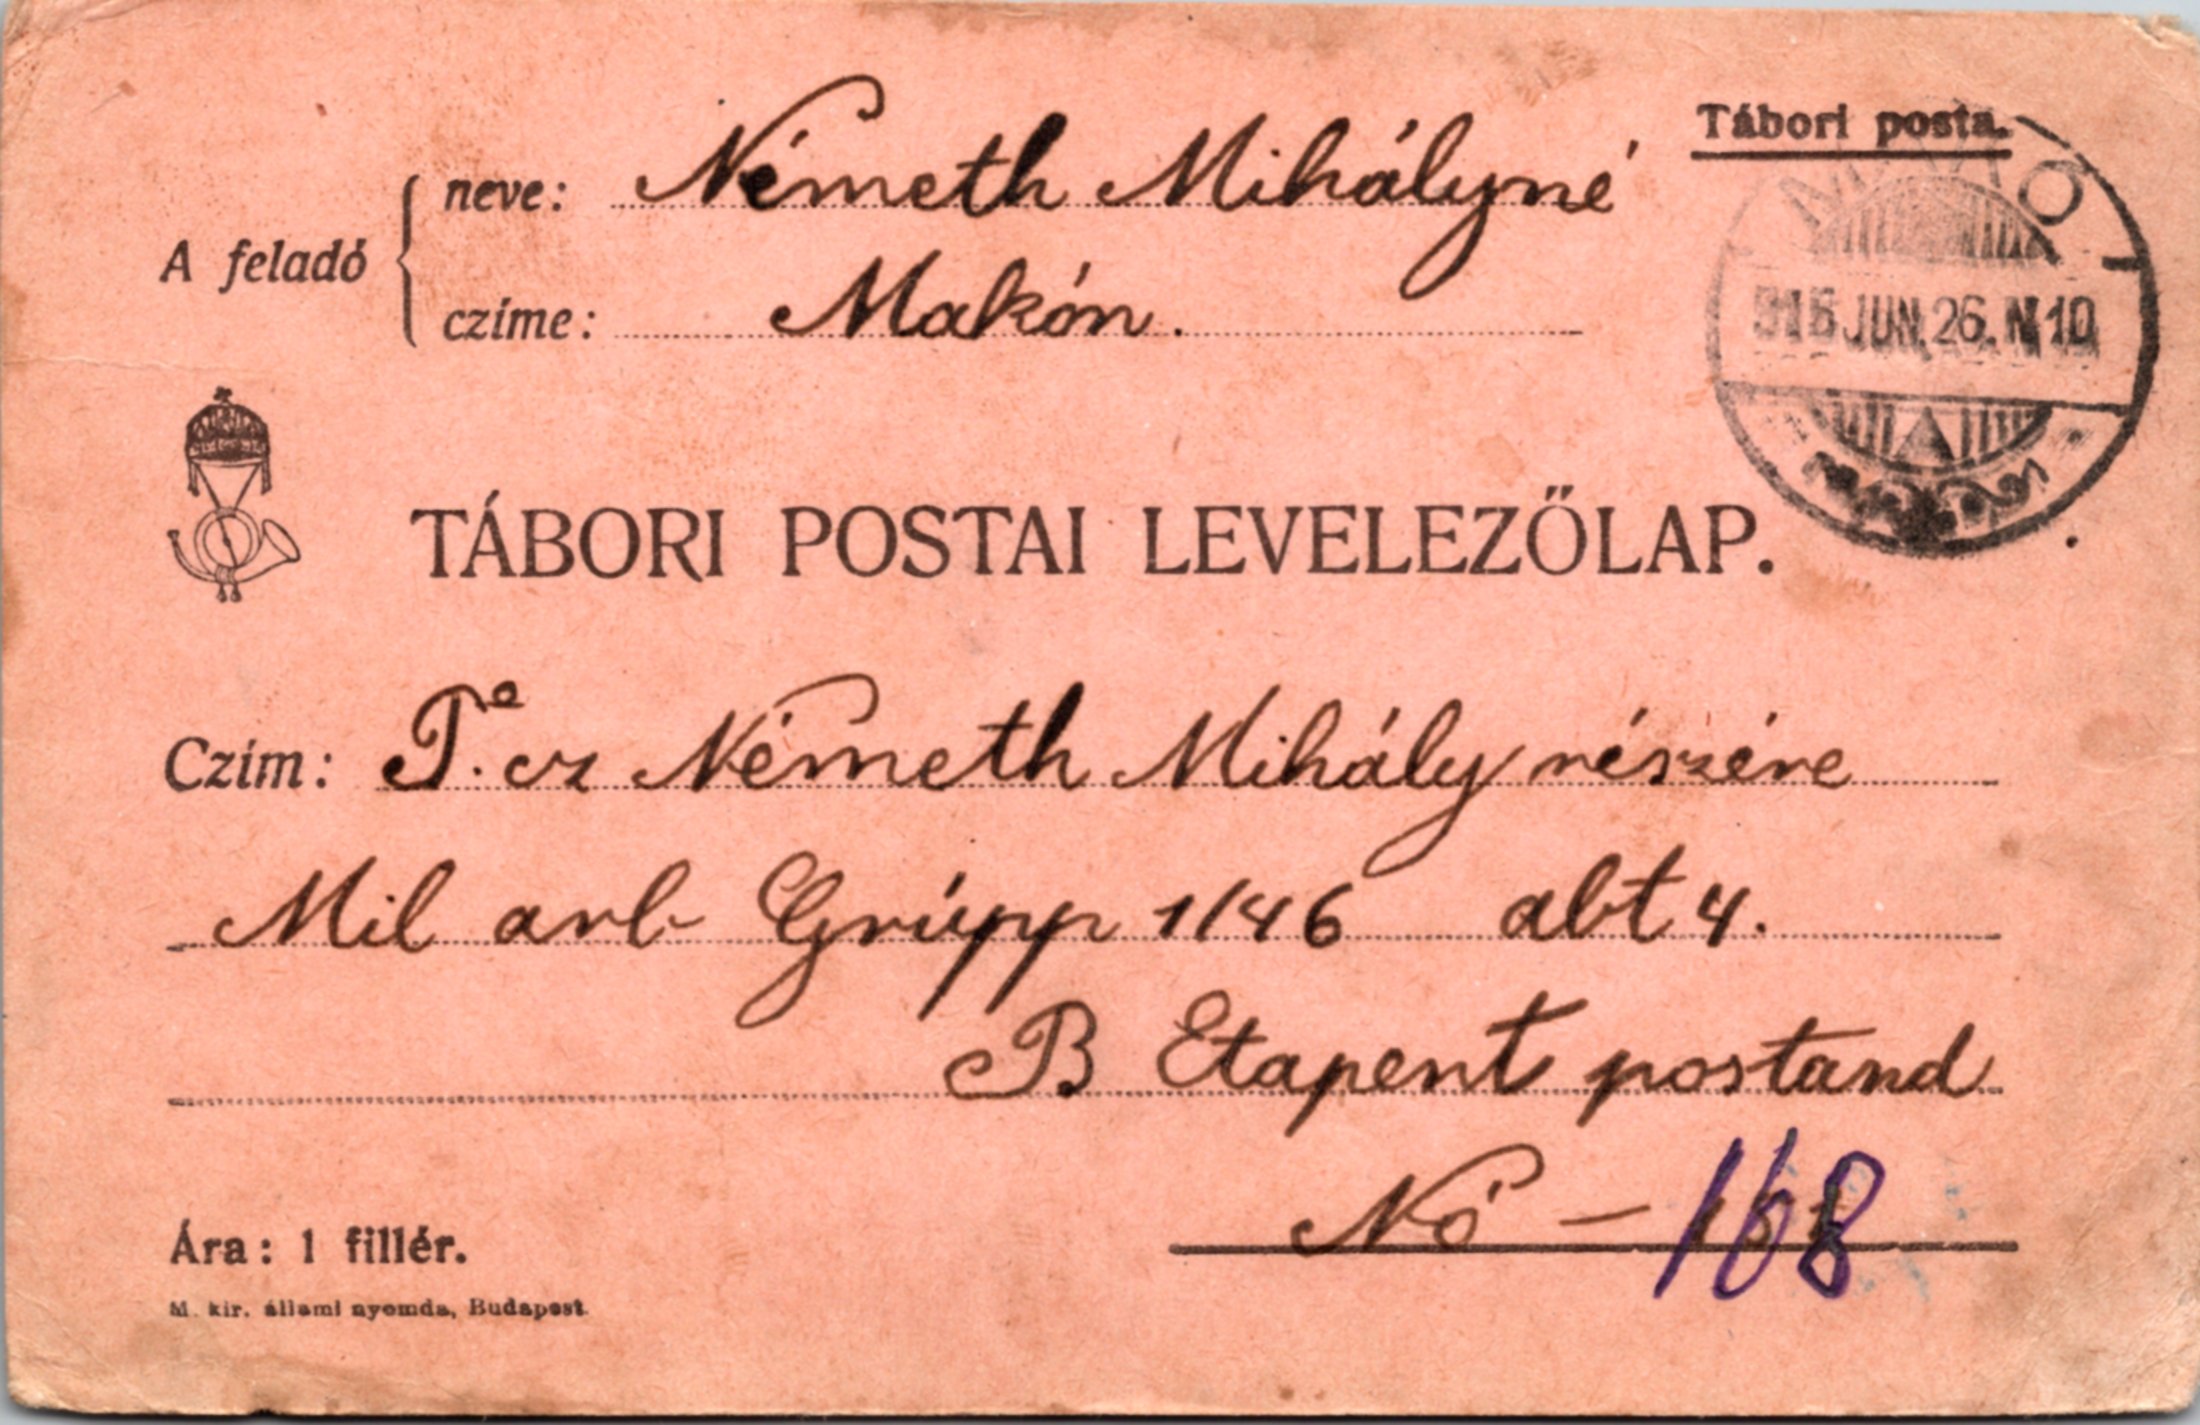 Tábori posta.
A feladó
neve: Németh Mihályné
czíme: Makón.
MAKÓ
915 JUN. 26. N 10
TÁBORI POSTAI LEVELEZŐLAP.
Czím: T. cz Németh Mihály részére
Mil arb Grúpp 1/46 abt 4.
B Etapent postand
Nó - 168
Ára: 1 fillér.
M. kir. állami nyomda, Budapest.